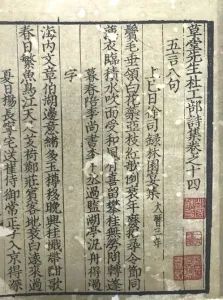 草堂先生杜工部詩集卷之十四
五言八句
上巳日徐司錄林園宴集 大曆三年
鬢毛垂領白花蕊亞枝紅欹倒衰年廢招尋令節同
薄衣臨積水吹面受和風有喜留攀桂無勞問轉蓬
暮春陪李尚書李中丞過鄭監湖亭泛舟得過
字
海內文章伯湖邊意緒多玉樽移晚興桂楫帶酣歌
春日繁魚鳥江天足芰荷鄭莊賓客地衰白遠來過
夏日楊長寧宅送崔侍御常正字入京得深